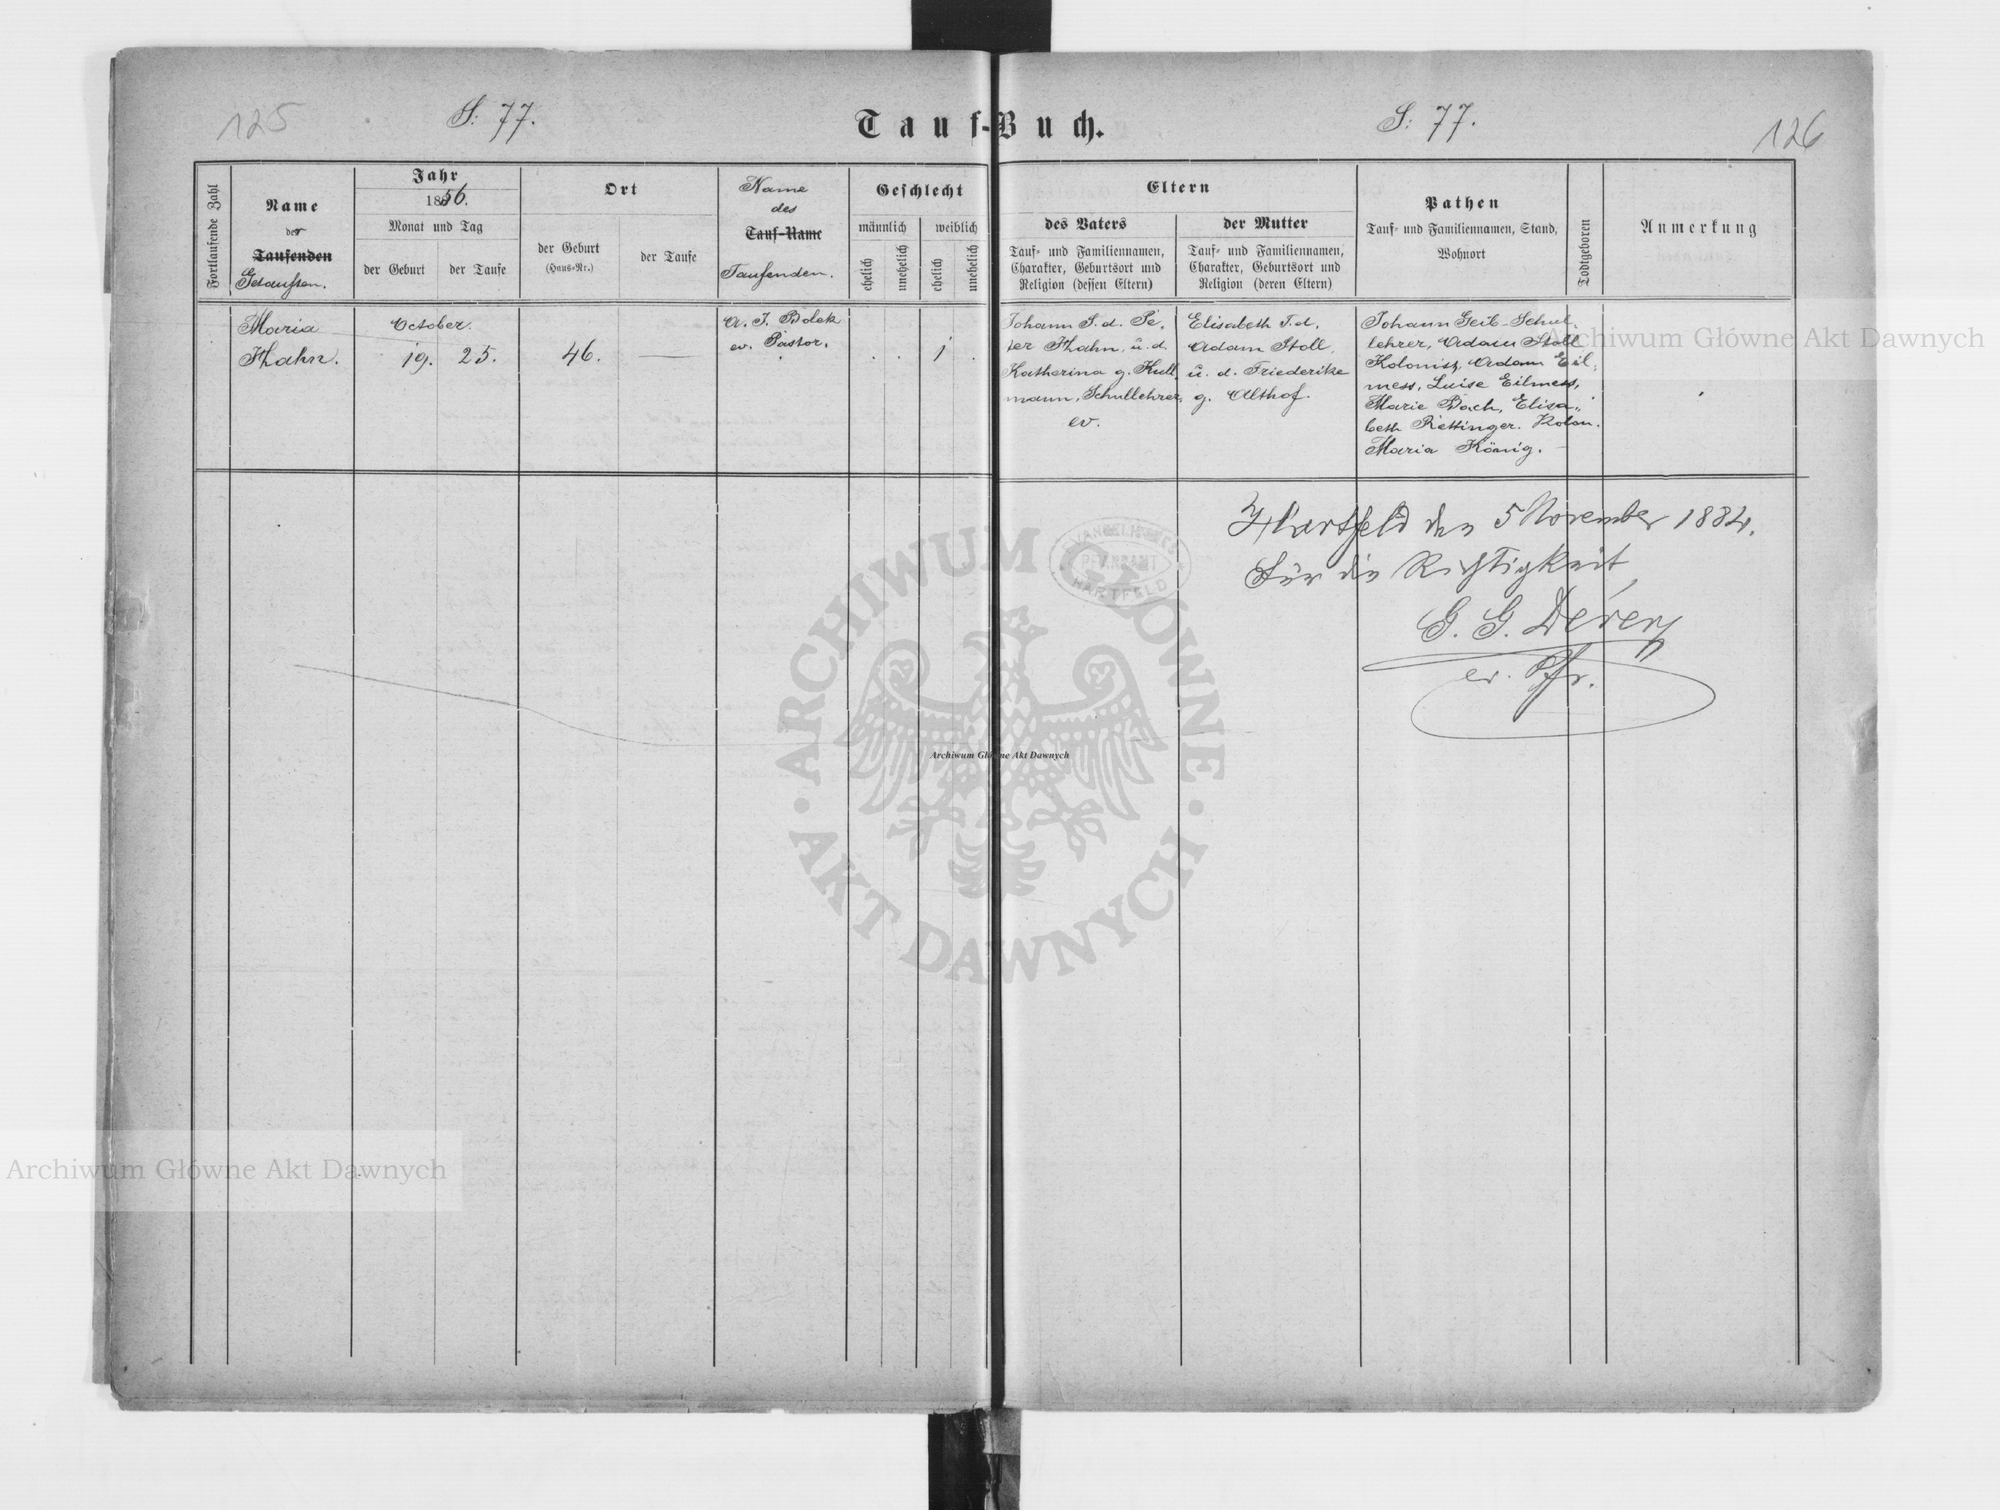 125
S: 77.
Tauf-Buch.
S: 77.
126
Fortlaufende Zahl
Name
der
Taufenden
Getauften.
Jahr
1856.
Monat und Tag
der Geburt
der Taufe
Ort
der Geburt
(Haus-Nr.)
der Taufe
Name
des
Tauf-Name
Taufenden.
Geschlecht
männlich
weiblich
ehelich
unehelich
ehelich
unehelich
Eltern
des Vaters
Tauf- und Familiennamen,
Charakter, Geburtsort und
Religion (dessen Eltern)
der Mutter
Tauf- und Familiennamen,
Charakter, Geburtsort und
Religion (deren Eltern)
Pathen
Tauf- und Familiennamen, Stand,
Wohnort
Todtgeboren
Anmerkung
Maria
Hahn.
October.
19. 25.
46.
A. J. Bolek
ev. Pastor.
1
Johann S. d. Pe,
ter Hahn, u. d.
Katherina g. Kull,
mann, Schullehrer,
ev.
Elisabeth T. d.
Adam Stoll,
u. d. Friederike
g. Althof.
Johann Geib-Schul,
lehrer, Adam Stoll
Kolonist, Adam Eil,
mess, Luise Eilmess,
Marie Bach, Elisa,,
beth Rettinger. Kolon.
Maria König.
Hartfeld den 5 November 1884.
Für die Richtigkeit
G. G. Royer
ev. Pfr.
EVANGELISCHES
PFARRAMT
HARTFELD
ARCHIWUM GŁÓWNE
AKT DAWNYCH
Archiwum Główne Akt Dawnych
Archiwum Główne Akt Dawnych
Archiwum Główne Akt Dawnych